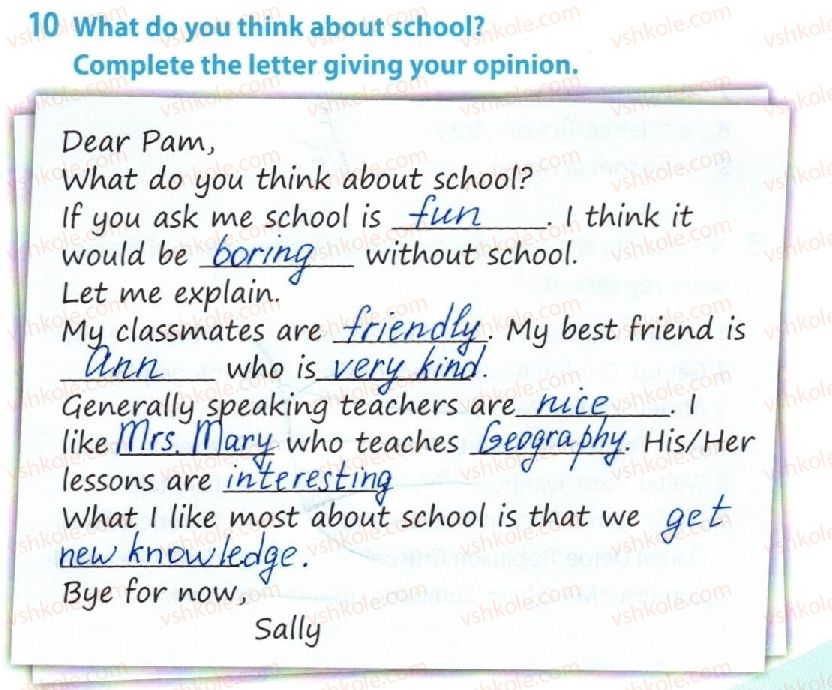 10 What do you think about school?
Complete the letter giving your opinion.
Dear Pam,
What do you think about school?
If you ask me school is fun. I think it
would be boring without school.
Let me explain.
My classmates are friendly. My best friend is
Ann who is very kind.
Generally speaking teachers are nice. I
like Mrs. Mary who teaches Geography. His/Her
lessons are interesting
What I like most about school is that we get
new knowledge.
Bye for now,
Sally
vshkole.com